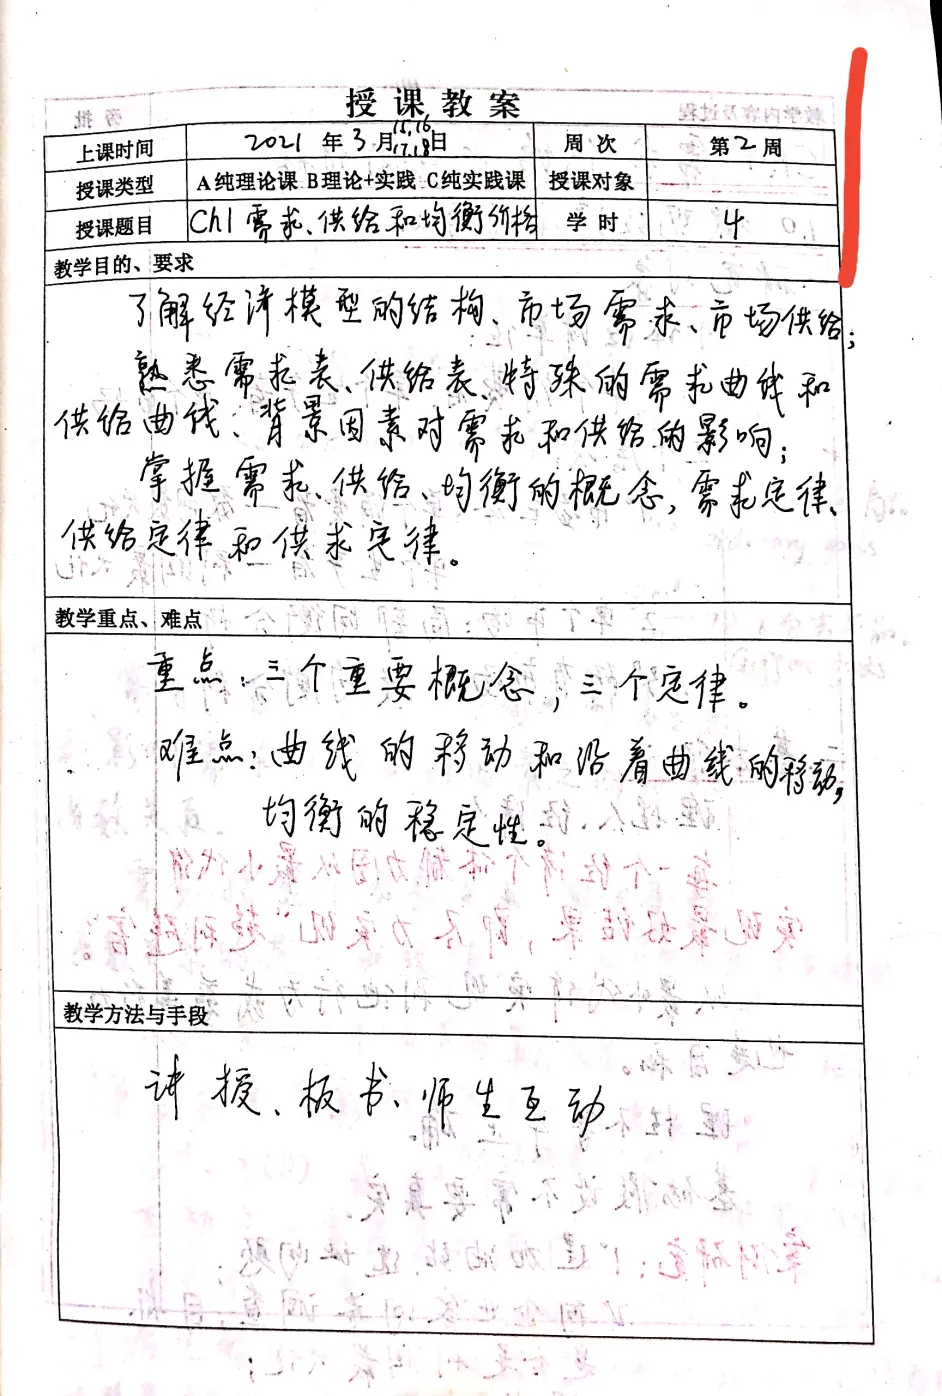 授课教案
上课时间 2021年3月15,16,17,18日 周次 第2周
授课类型 A纯理论课 B理论+实践 C纯实践课 授课对象
授课题目 Ch1 需求、供给和均衡价格 学时 4
教学目的、要求
了解经济模型的结构、市场需求、市场供给;
熟悉需求表、供给表、特殊的需求曲线和
供给曲线、背景因素对需求和供给的影响;
掌握需求、供给、均衡的概念,需求定律、
供给定律和供求定律。
教学重点、难点
重点:三个重要概念,三个定律。
难点:曲线的移动和沿着曲线的移动,
均衡的稳定性。
教学方法与手段
讲授、板书、师生互动